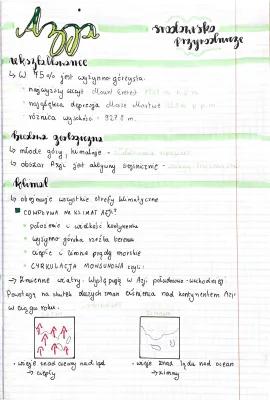 Azja
środowisko
przyrodnicze
ukształtowanie
↳ W 75% jest wyżynno-górzysta.
• najwyższy szczyt - Mount Everest
• największa depresja - Morze Martwe
• różnica wysokości -
budowa geologiczna
↳ młode góry, himalaje -
↳ obszar Azji jest aktywny sejsmicznie -
klimat
↳ obejmuje wszystkie strefy klimatyczne
CO WPŁYWA NA KLIMAT AZJI?
• położenie i wielkość kontynentu
• wyżynno górska rzeźba terenu
• ciepłe i zimne prądy morskie
• CYRKULACJA MONSUNOWA czyli:
→ Zmienne wiatry. Występują w Azji południowo-wschodniej.
Powstają na skutek dużych zmian ciśnienia nad kontynentem Azji
w ciągu roku.
• wieje znad oceanu nad ląd
→ ciepły
• wieje znad lądu nad ocean
→ zimny